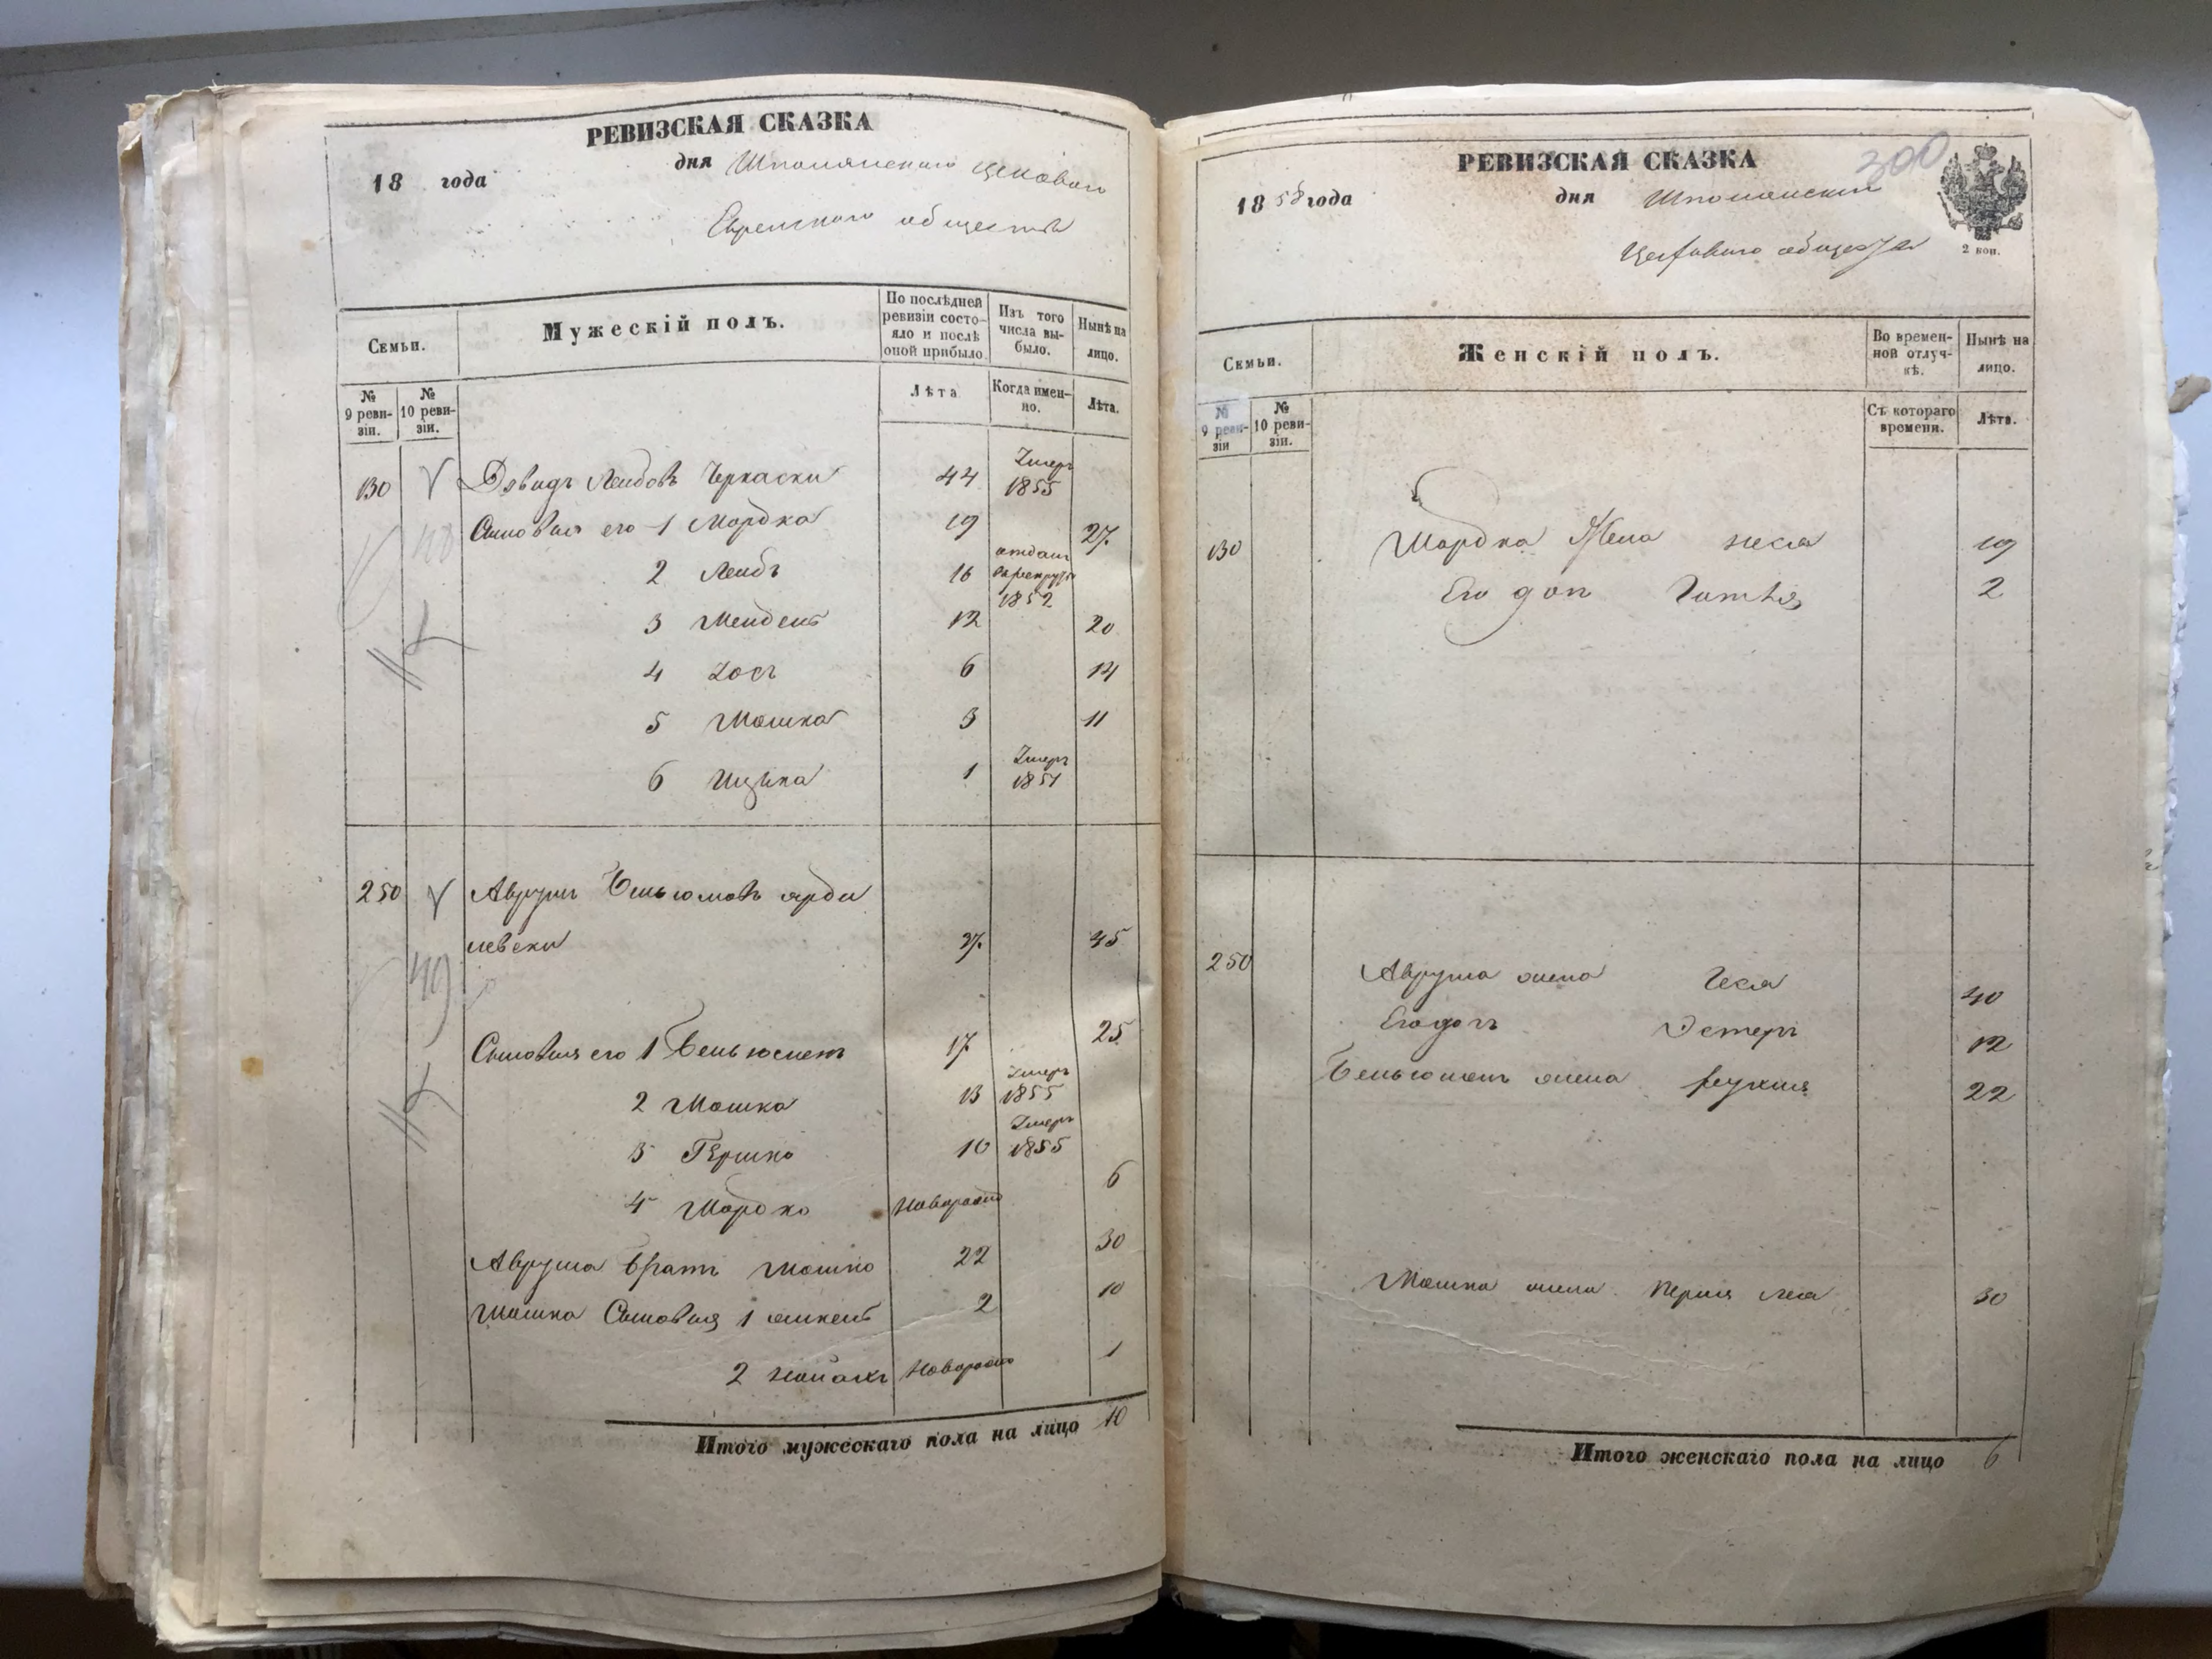 РЕВИЗСКАЯ СКАЗКА
18 года дня Шполянского Цехового
Еврейского общества
Семьи.
Мужескій полъ.
По послѣдней ревизіи состояло и послѣ оной прибыло.
Изъ того числа выбыло.
Нынѣ на лицо.
№ 9 ревизіи.
№ 10 ревизіи.
Лѣта
Когда именно.
Лѣта.
130 Довидъ Лейбовъ Черкаски 44 Умеръ 1855
Сыновья его 1 Мордко 19 27
2 Лейбъ 16 отданъ 1852
3 Мендель 12 20
4 Іосъ 6 14
5 Мошка 3 11
6 Ицька 1 Умеръ 1851
250 Аврумъ Беньюмовъ ярди
левски 37 45
Сыновья его 1 Беньюменъ 17 25
2 Мошко 13 Умеръ 1855
3 Гершко 10 Умеръ 1855
4 Мордко Новорожд 6
Аврума братъ Мошко 22 30
Мошка Сыновья 1 2 10
2 Новорожд 1
Итого мужескаго пола на лицо 10
РЕВИЗСКАЯ СКАЗКА
300
1858 года дня Шполянскаго
Цехового общества
2 коп.
Семьи.
Женскій полъ.
Во временной отлучкѣ.
Нынѣ на лицо.
№ 9 ревизіи
№ 10 ревизіи.
Съ котораго времени.
Лѣта.
130 Мордка Жена Неся 19
Его доч 2
250 Аврума жена 40
Его доч Эстеръ 12
Беньюмена жена Рухля 22
Мошка жена Перля Лея 30
Итого женскаго пола на лицо 6